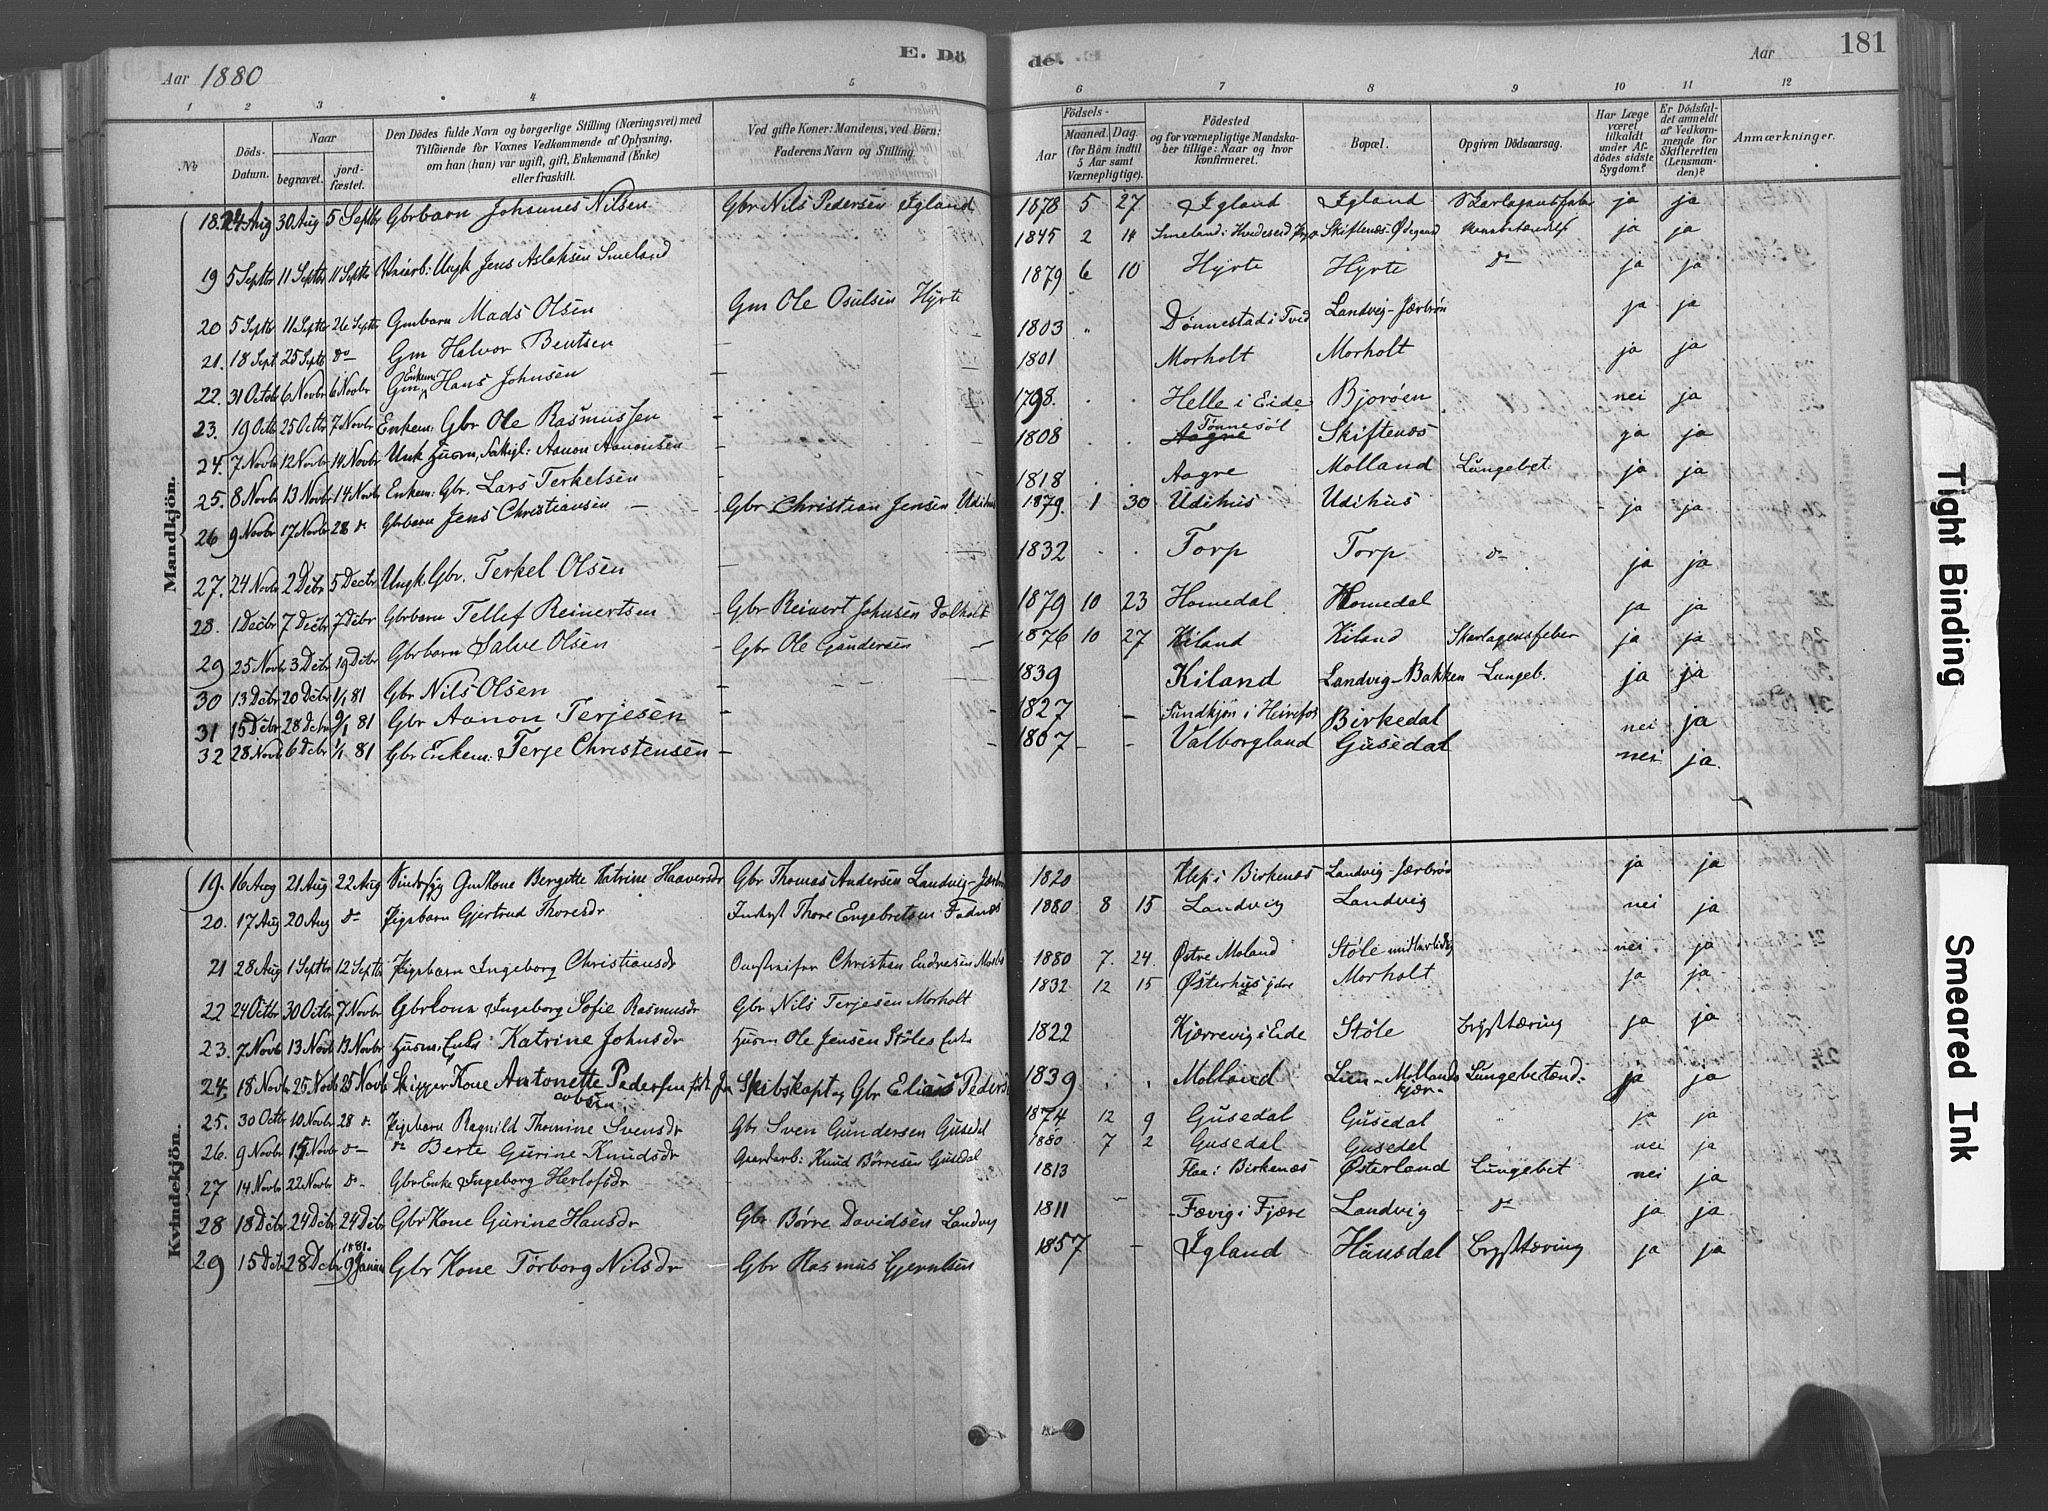 Aar 1880
E. Dö
de.
Aar
181
1 2 3 4 5 6
6 7 8 9 10 11 12
№
Döds-Datum.
Naar
begravet.
jord-fæstet.
Den Dödes fulde Navn og borgerlige Stilling (Næringsvei) med Tilföiende for Voxnes Vedkommende af Oplysning, om han (hun) var ugift, gift, Enkemand (Enke) eller fraskilt.
Ved gifte Koner: Mandens, ved Börn: Faderens Navn og Stilling.
Födsels-
Aar
Maaned. Dag.
(for Börn indtil 5 Aar samt Værnepligtige).
Födested og for værnepligtige Mandska-ber tillige: Naar og hvor Konfirmeret.
Bopæl.
Opgiven Dödsaarsag.
Har Læge været tilkaldt under Af-dödes sidste Sygdom?
Er Dödsfal-det anmeldt af Vedkom-mende for Skifteretten (Lensman-den)?
Anmærkninger.
Mandkjön.
18. 24 Aug 30 Aug 5 Septbr Gbrbarn Johannes Nilsen Gbr Nils Pedersen Igland 1878 5 27 Igland Igland Skarlagensfeber ja ja
19 5 Septbr 11 Septbr 11 Septbr Ungk Jens Aslaksen Smeland 1845 2 14 Smeland i Hvideseid Skiftenæs-Ødegaard ja ja
20 5 Septbr 11 Septbr 26 Septbr Gmbarn Mads Olsen Gm Ole Osulsen Hyrte 1879 6 10 Hyrte Hyrte do ja ja
21. 18 Sept 25 Septb do Gm Halvor Bentsen 1803 " Dønnestad i Tved Landvig-Jærbrøn ja ja
22. 31 Octbr 6 Novbr 6 Novbr Gm Enkem: Hans Johnsen 1801 Morholt Morholt ja ja
23. 19 Octb 25 Octbr 7 Novbr Enkem: Gbr Ole Rasmussen - 1798. . . Helle i Eide Bjorøen nei ja
24. 7 Novbr 12 Novbr 14 Novbr Unk Husm. Aanon Aanonsen - 1808 . . Aagre Tønnesøl Skiftenæs ja ja
25. 8 Novbr 13 Novbr 14 Novbr Enkem: Gbr. Lars Terkelsen - 1818 . . Aagre Molland Lungebet. ja ja
26 9 Novbr 17 Novbr 28 do Gbrbarn Jens Christiansen - Gbr Christian Jensen Udihus 1879. 1 30 Udihus Udihus - ja ja
27. 24 Novbr 2 Debr 5 Decbr Ungk. Gbr. Terkel Olsen 1832 . . Torp Torp do ja ja
28. 1 Decbr 7 Decbr 7 Debr Gbrbarn Tellef Reinertsen - Gbr Reinert Johnsen Dalholt 1879 10 23 Homedal Homedal ja ja
29 25 Novb 3 Debr 19 Debr Gbrbarn Salve Olsen Gbr Ole Gundersen - 1876 10 27 Kiland Kiland Skarlagensfeber ja ja
30 13 Debr 20 Debr 1/1 81 Gbr Nils Olsen - 1839 Kiland Landvig-Bakken Lungeb. ja ja
31 15 Debr 28 Debr 9/1 81 Gbr Aanon Terjesen - 1827 - Sundkjøn i Heirefos Birkedal nei ja
32 28 Novb 6 Debr 1/1 81 Gbr Enkem: Terje Christensen - 1807 - - Valborgland Gusedal nei ja.
Kvindekjön.
19. 16 Aug 21 Aug 22 Aug Kone Bergitte Katrine Haaversdr Gbr Thomas Andersen Landvig-Jærbrøn 1820 Klep i Birkenæs Landvig-Jærbrøn ja ja
20. 17 Aug 20 Aug do Pigebarn Gjertrud Thoresdr Thore Engebretsen Fadnæs 1880 8 15 Landvig Landvig nei ja
21 28 Aug 1 Septbr 12 Septb Pigebarn Ingeborg Christiansdr Christian Endresen 1880 7. 24. Østre Moland Støle nei ja
22 24 Octbr 30 Octbr 7 Novbr Gbr Kone Ingeborg Sofie Rasmusdr Gbr Nils Terjesen Morholt 1832 12 15 Østerhus Morholt ja ja
23. 7 Novb 13 Novb 13 Novbr Husm. Enke: Katrine Johnsdr Husm Ole Jensen Støles Enke 1822 Kjærrevig i Eide Støle Brysttæring ja ja
24. 18 Novbr 25 Novb 25 Novb Skipper Kone Antonette Pedersen født Jacobsen Skibskapt og Gbr Elias Peders 1839 . . Molland Lien-Mollands kjær Lungebetænd: ja ja
25. 30 Octbr 10 Novbr 28 do Pigebarn Ragnild Thomine Svensdr Gbr Sven Gundersen Gusedal 1874 12 9 Gusedal Gusedal " ja ja
26. 9 Novbr 15 Novbr do do Berte Gurine Knudsdr Gaardarb: Knud Børresen Gusedal 1880 7 2 Gusedal Gusedal nei ja
27 14 Novbr 22 Novbr do Gbr Enke Ingeborg Herlofsdr - 1813 Flae i Birkenæs Østerland Lungebet nei ja
28 18 Debr 24 Debr 24 Debr Gbr Kone Gurine Hansdr Gbr Børre Davidsen Landvig 1811 " - Fævig i Fjære Landvig do ja ja
29 15 Debr 28 Debr 1881. 9 Januar Gbr Kone Torborg Nilsdr Gbr Rasmus Gjernhus 1857 - Igland Hunsdal Brysttæring ja ja
Tight Binding
Smeared Ink